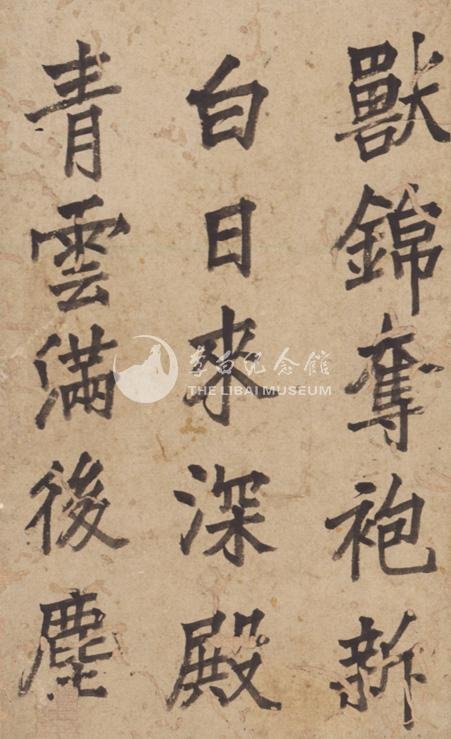 獸錦奪袍新
白日來深殿
青雲滿後塵
李白纪念馆
THE LIBAI MUSEUM